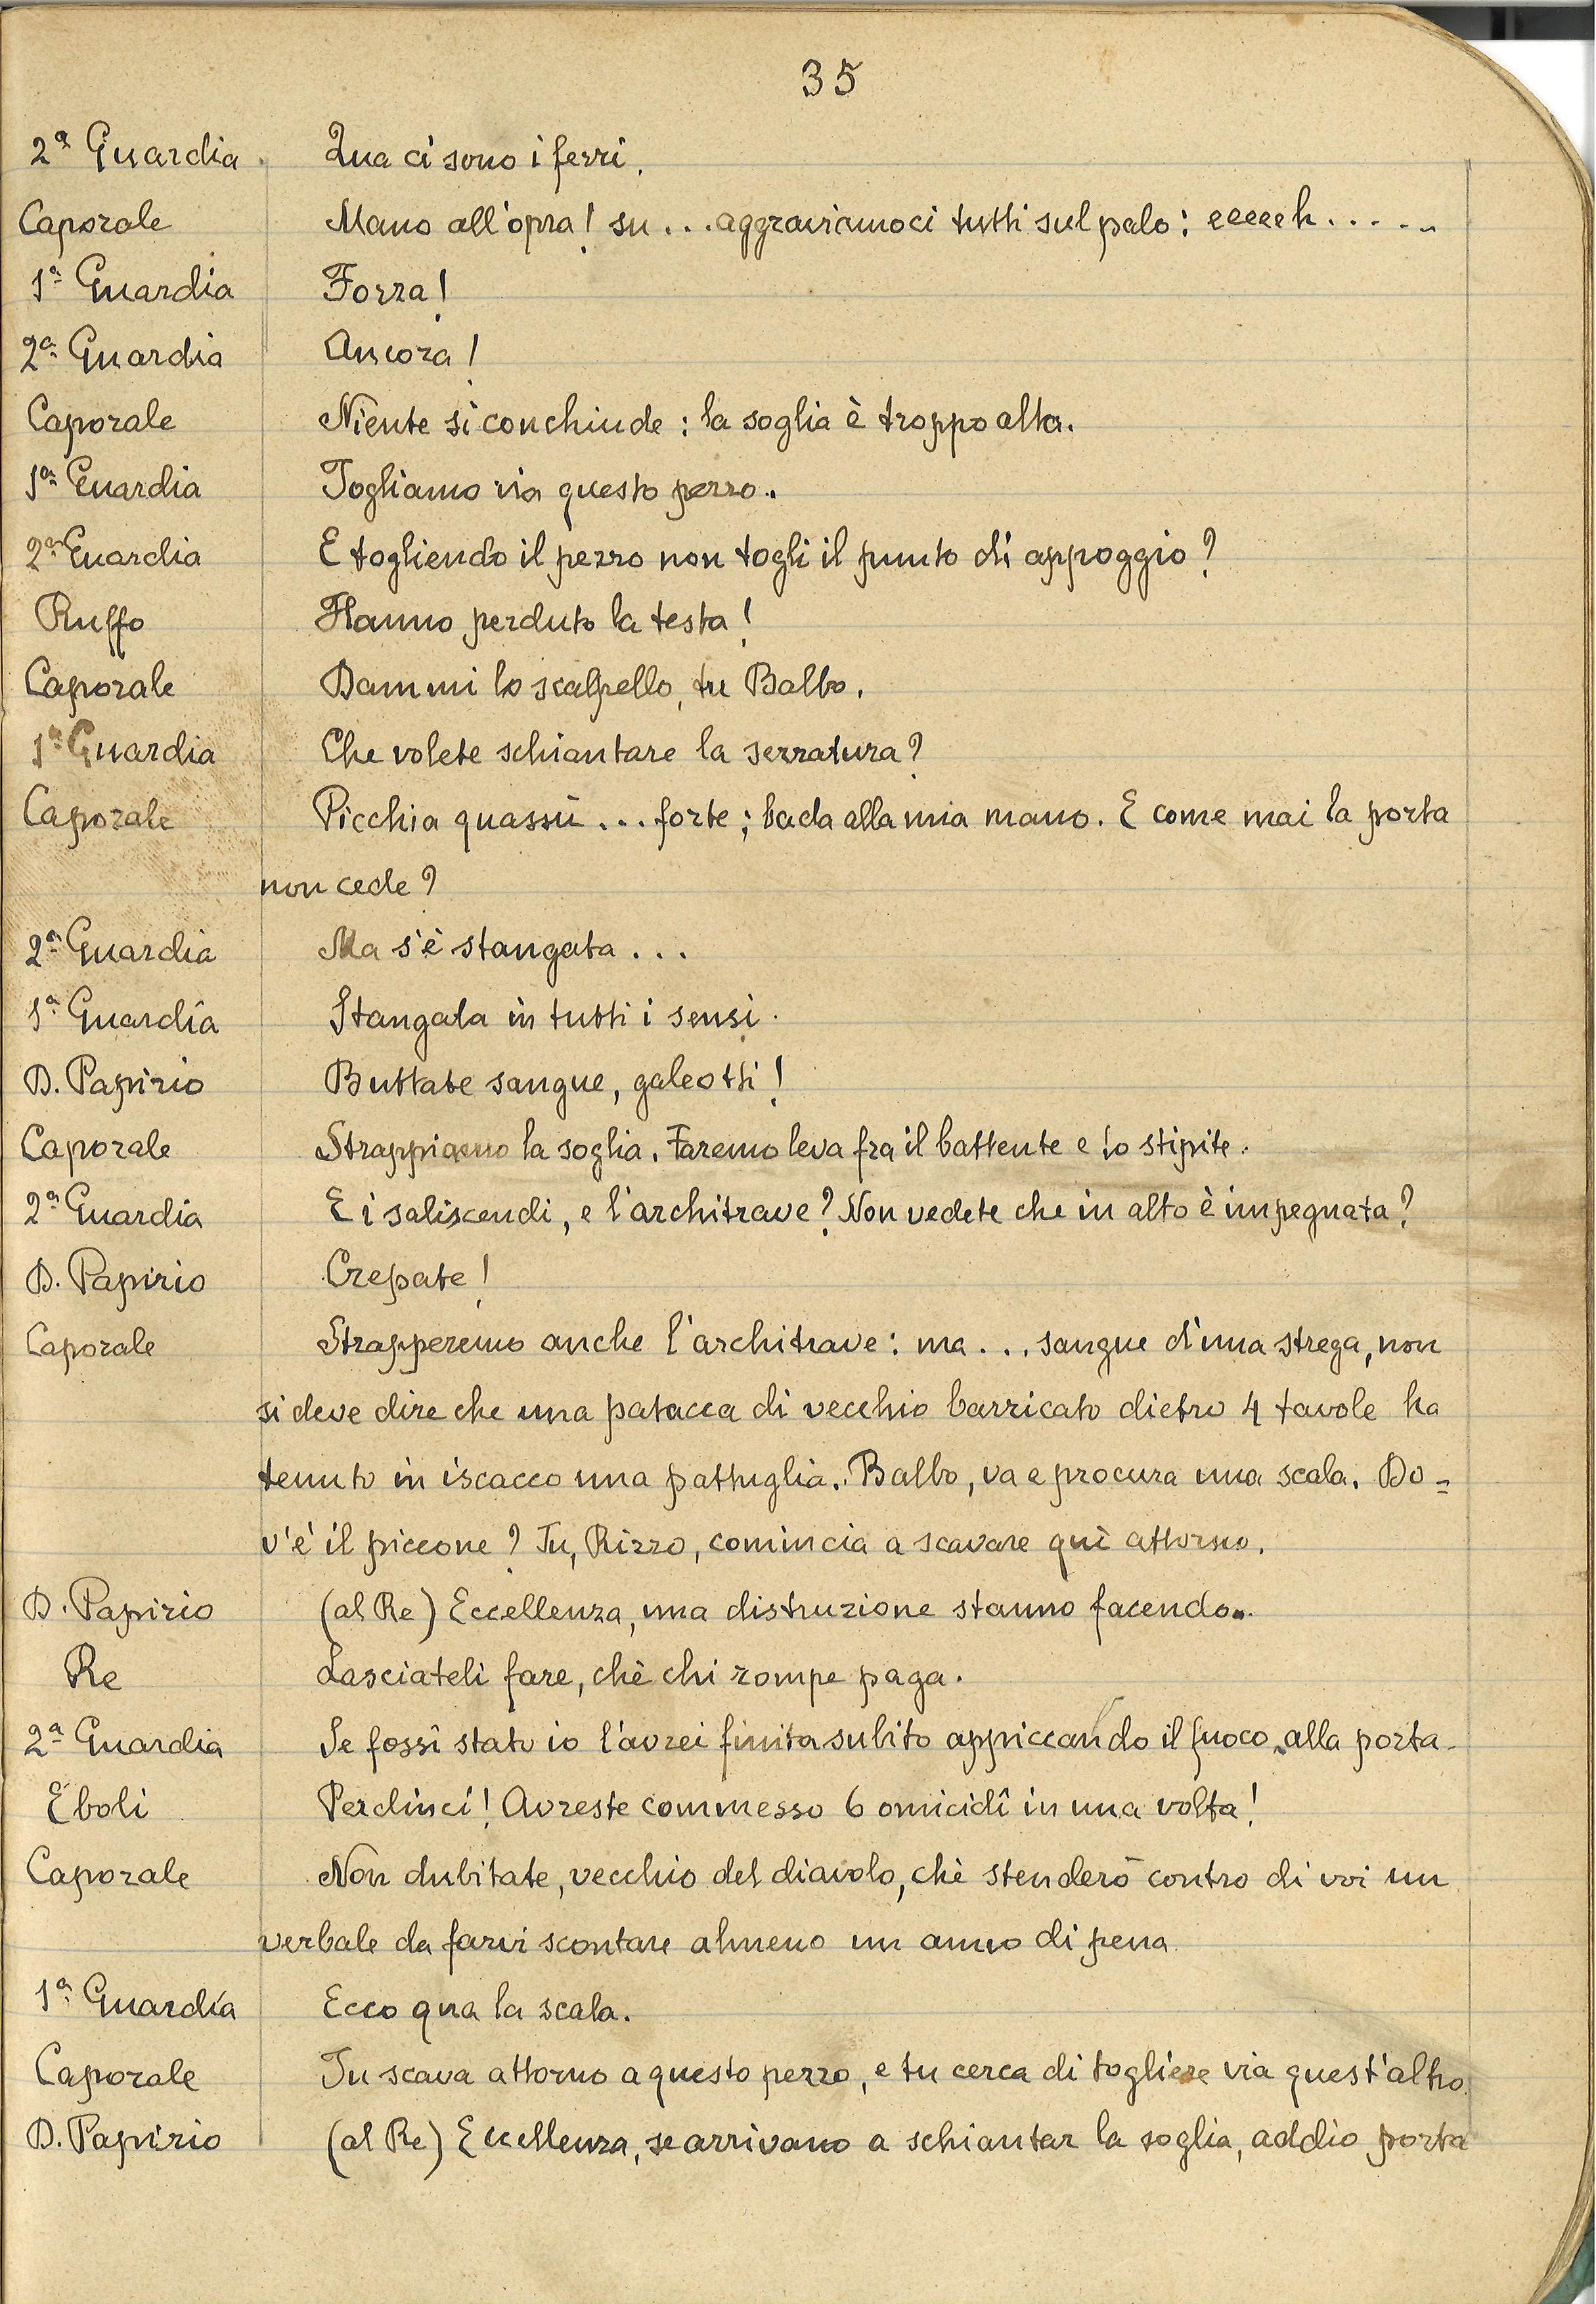 35
2ª Guardia. Qua ci sono i ferri.
Caporale Mano all'opra! su... aggraviamoci tutti sul palo: eeeeh......
1ª Guardia Forza!
2ª Guardia Ancora!
Caporale Niente si conchiude: la soglia è troppo alta.
1ª Guardia Togliamo via questo pezzo.
2ª Guardia E togliendo il pezzo non togli il punto di appoggio?
Ruffo Hanno perduto la testa!
Caporale Dammi lo scalpello, tu Balbo.
1ª Guardia Che volete schiantare la serratura?
Caporale Picchia quassù... forte; bada alla mia mano. E come mai la porta
non cede?
2ª Guardia Ma s'è stangata...
1ª Guardia Stangata in tutti i sensi.
D. Papirio Buttate sangue, galeotti!
Caporale Strappiamo la soglia. Faremo leva fra il battente e lo stipite.
2ª Guardia E i saliscendi, e l'architrave? Non vedete che in alto è impegnata?
D. Papirio Crepate!
Caporale Strapperemo anche l'architrave: ma... sangue d'una strega, non
si deve dire che una patacca di vecchio barricato dietro 4 tavole ha
tenuto in iscacco una pattuglia. Balbo, va e procura una scala. Do=
v'è il piccone? Tu, Rizzo, comincia a scavare quì attorno.
D. Papirio (al Re) Eccellenza, una distruzione stanno facendo..
Re Lasciateli fare, chè chi rompe paga.
2ª Guardia Se fossi stato io l'avrei finita subito appiccando il fuoco alla porta.
Eboli Perdinci! Avreste commesso 6 omicidî in una volta!
Caporale Non dubitate, vecchio del diavolo, chè stenderò contro di voi un
verbale da farvi scontare almeno un anno di pena
1ª Guardia Ecco qua la scala.
Caporale Tu scava attorno a questo pezzo, e tu cerca di togliere via quest'altro.
D. Papirio (al Re) Eccellenza, se arrivano a schiantar la soglia, addio porta